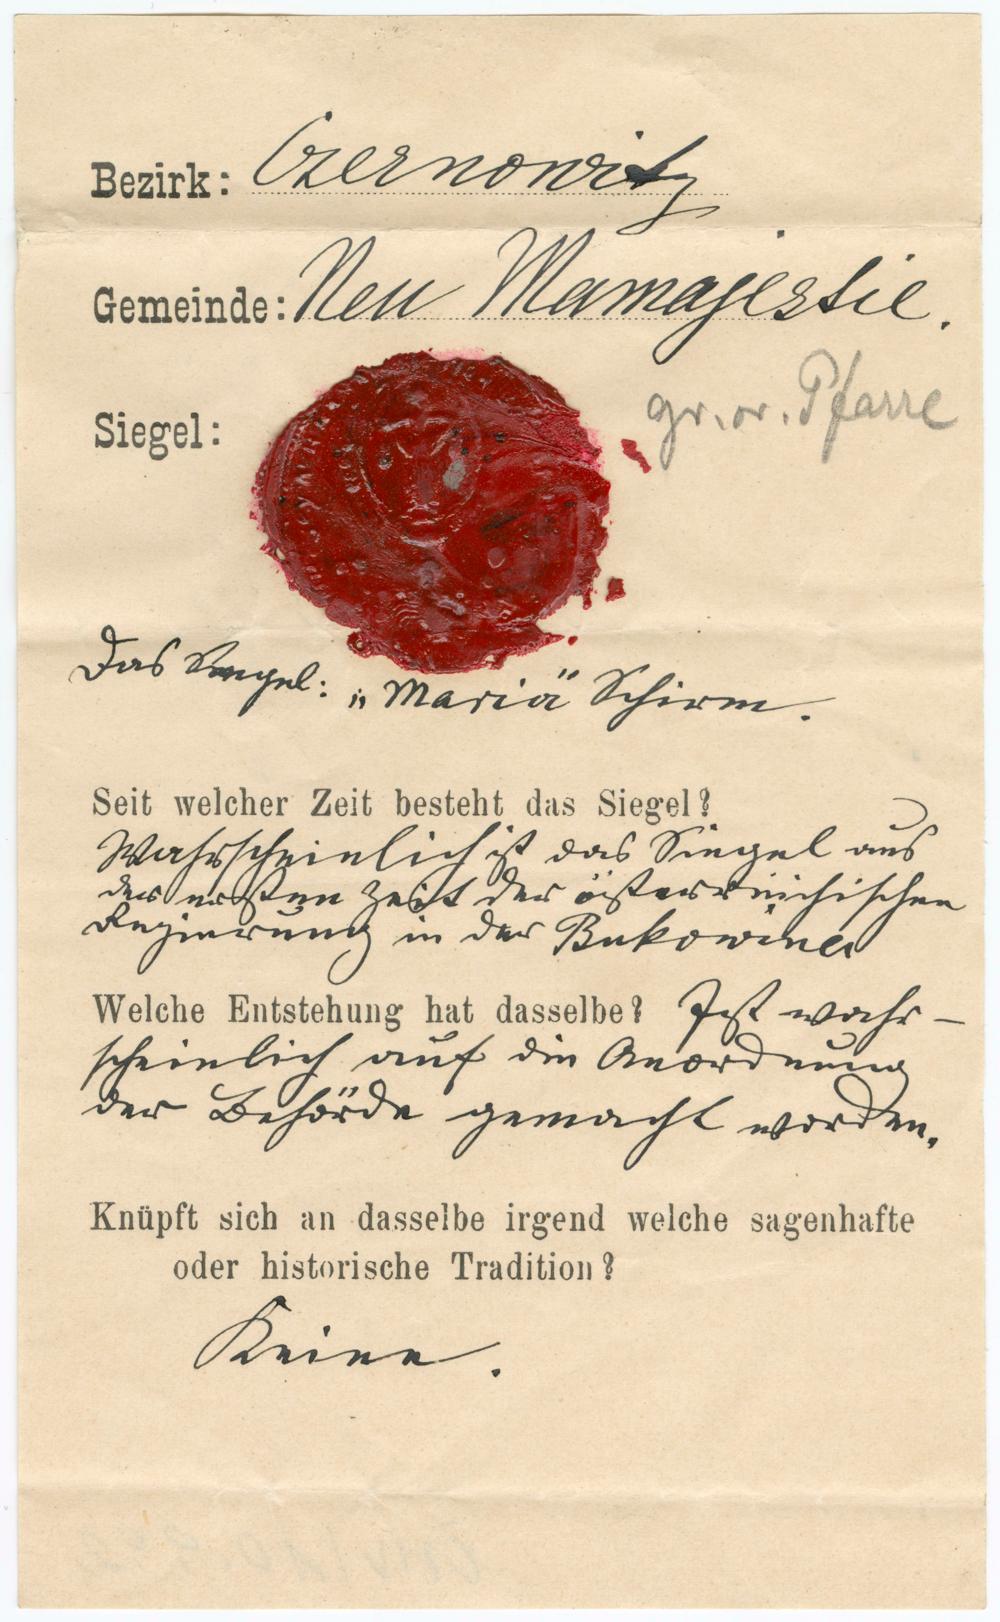 Bezirk: Czernowitz
Gemeinde: Neu Mamajestie.
Siegel:
gr. or. Pfarre
Das Siegel: „Mariä" Schirm.
Seit welcher Zeit besteht das Siegel?
Wahrscheinlich ist das Siegel aus
der ersten Zeit der österreichischen
Regierung in der Bukowina
Welche Entstehung hat dasselbe? Ist wahr-
scheinlich auf die Anordnung
der Behörde gemacht worden.
Knüpft sich an dasselbe irgend welche sagenhafte
oder historische Tradition?
Keine.